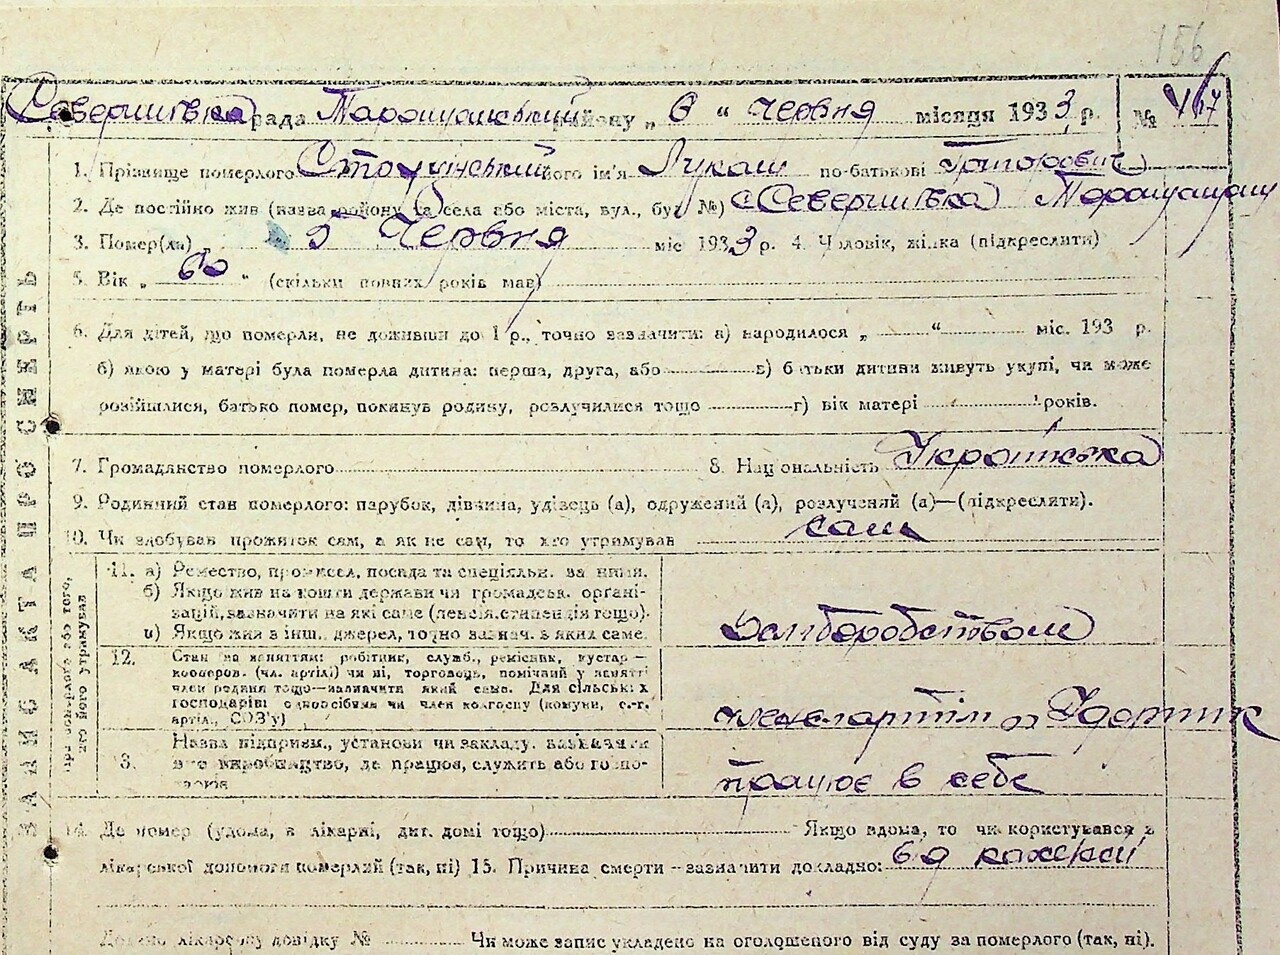 156
Севершівка рада Таращанський району „ 6 “ червня місяця 1933 р. №
1. Прізвище померлого його ім'я Лукаш по-батькові Григорович
2. Де постійно жив (назва району та села або міста, вул., буд. №) с Севершівка
3. Помер(ла) „ 5 Червня міс 1933 р. 4. Чоловік, жінка (підкреслити)
5. Вік „ 60 “ (скільки повних років мав)
6. Для дітей, що померли, не доживши до 1 р., точно зазначити: а) народилося „ “ міс. 193 р.
б) якою у матері була померла дитина: перша, друга, або в) батьки дитини живуть укупі, чи може
розійшлися, батько помер, покинув родину, розлучилися тощо г) вік матері років.
7. Громадянство померлого 8. Національність Українська
9. Родинний стан померлого: парубок, дівчина, удівець (а), одружений (а), розлучений (а)—(підкреслити).
10. Чи здобував прожиток сам, а як не сам, то хто утримував сам
ЗАПИС АКТА ПРО СМЕРТЬ
про померлого або того,
хто його утримував
11. а) Ремество, промисел, посада та спеціяльн. за ними.
б) Якщо жив на кошти держави чи громадськ. орґані-
зацій, зазначити на які саме (пенсія, стипендія тощо).
и) Якщо жив з інш. джерел, точно зазнач. з яких саме.
12. Стан на занятті: робітник, служб., ремісник, кустар—
кооперов. (чл. артілі) чи ні, торговець, помічний у занятті
член родини тощо—зазначити який саме. Для сільських
господарів одноосібник чи член колгоспу (комуни, с.-г.
артіл., СОЗ'у)
13. Назва підприєм., установи чи закладу, зазначити
його виробництво, де працює, служить або госпо-
працює в себе
14. Де помер (удома, в лікарні, дит. домі тощо) Якщо вдома, то чи користувався з
лікарської допомоги померлий (так, ні) 15. Причина смерти—зазначити докладно:
Додано лікарську довідку № Чи може запис укладено на оголошеного від суду за померлого (так, ні).